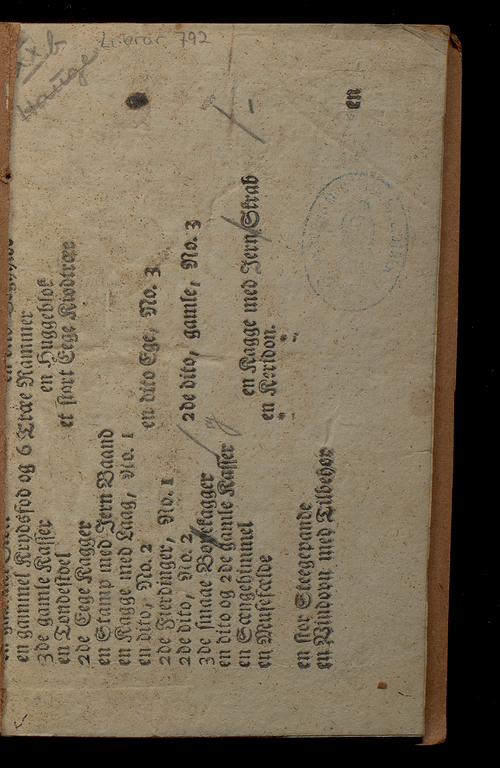 en gammel Krydsfod og 6 Træe Rammer
3de gamle Kasser
en Huggeblok
en Tøndestoel
et stort Eege Kiødtræe
2de Eege Kagger
en Stamp med Jern Baand
en Kagge med Laag, No. 1
en dito, No. 2
en dito Ege, No. 3
2de Fierdinger, No. 1
2de dito, No. 2
2de dito, gamle, No. 3
3de smaae Kagger
en dito og 2de gamle Kasser
en Sængehimmel
en Kagge med Jern Skrab
en Musefælde
en Keridon.
en stor Steegepande
en Bindovn med Tilbehør
en
Literar 792
xxb
Hauge